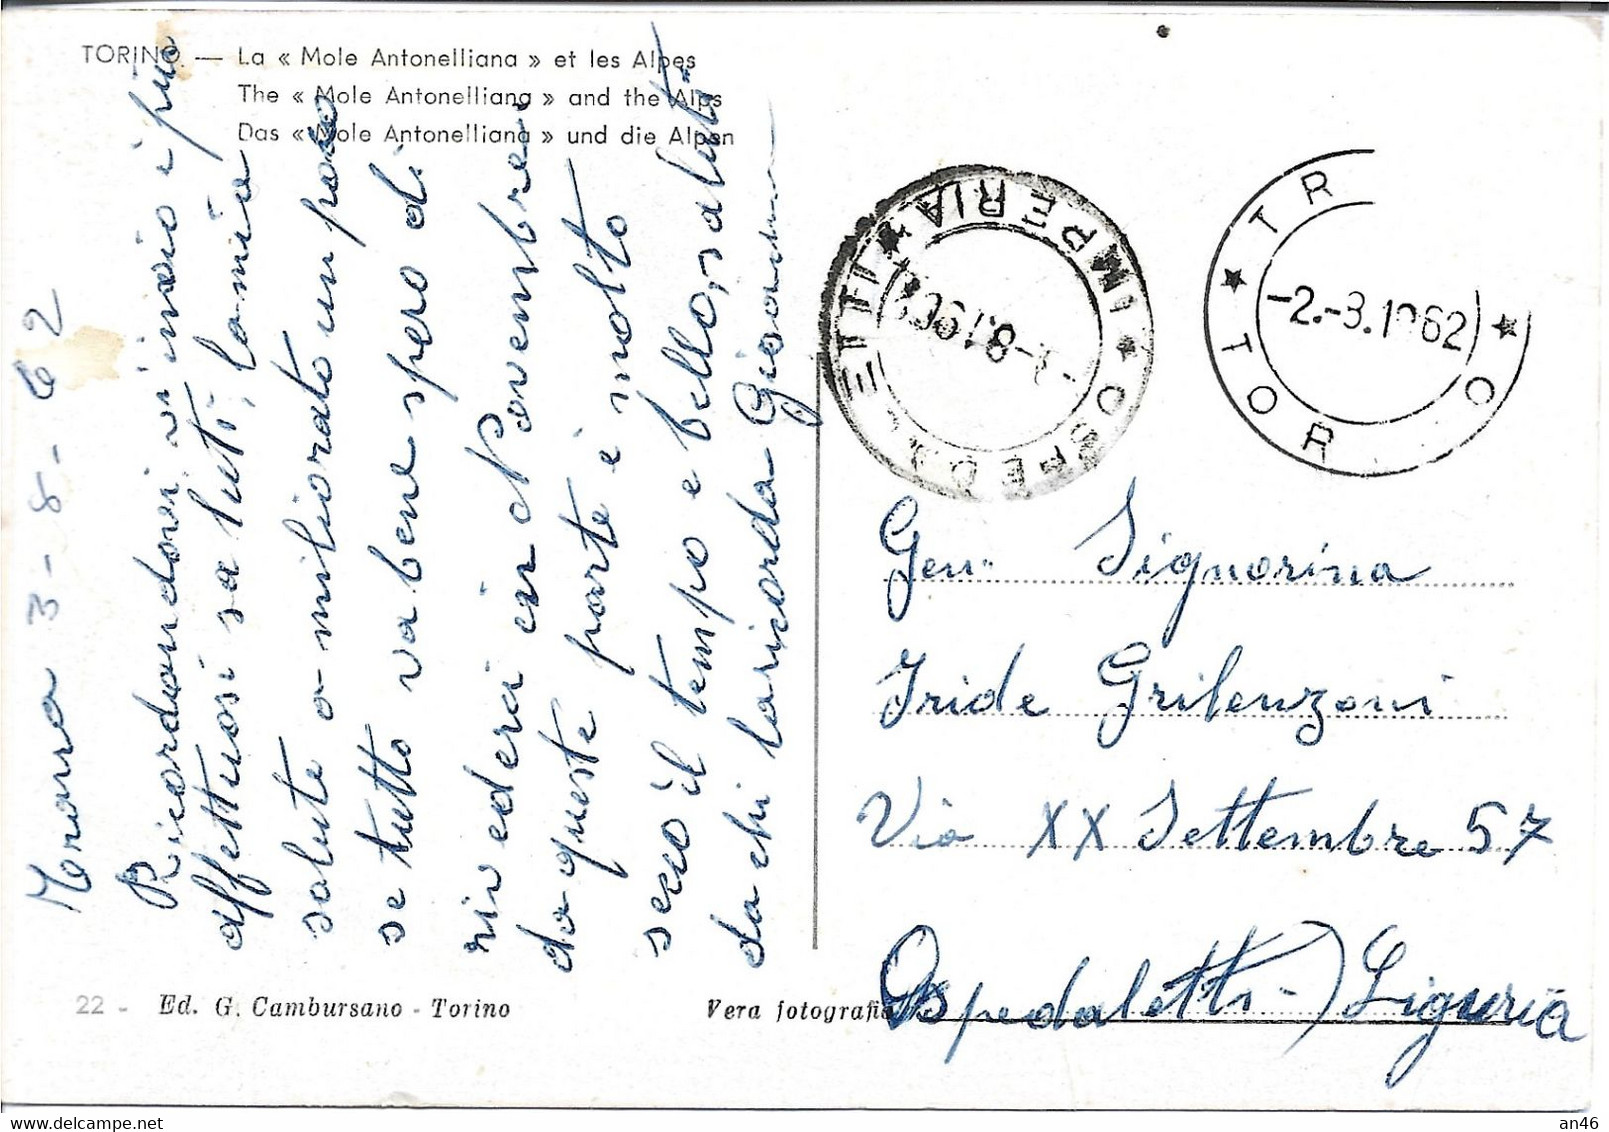 TORINO — La « Mole Antonelliana » et les Alpes
The « Mole Antonelliana » and the Alps
Das « Mole Antonelliana » und die Alpen
3-8-62
Ricordandovi vi invio i più
affettuosi saluti, la mia
salute a migliorato un poco
se tutto va bene spero di
rivederci in Novembre
da queste parte è molto
secco il tempo e bello, saluti
da chi la ricorda
IMPERIA
TR
TOR
-2.-8.1962
Gen. Signorina
Iride Grilenzoni
Via XX Settembre 57
Ospedaletti-) Liguria
22 - Ed. G. Cambursano - Torino
Vera fotografia
an46